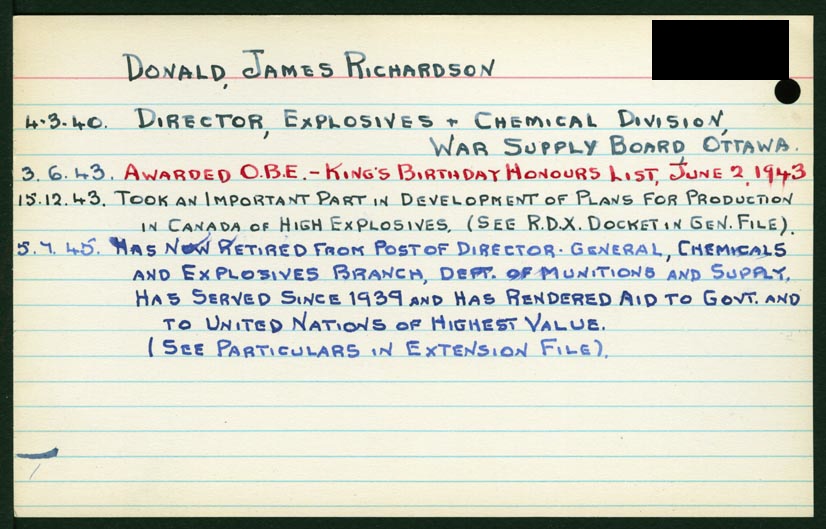 DONALD, JAMES RICHARDSON
4.3.40. DIRECTOR, EXPLOSIVES + CHEMICAL DIVISION,
WAR SUPPLY BOARD, OTTAWA.
3.6.43. AWARDED O.B.E. - KING'S BIRTHDAY HONOURS LIST, JUNE 2, 1943
15.12.43. TOOK AN IMPORTANT PART IN DEVELOPMENT OF PLANS FOR PRODUCTION
IN CANADA OF HIGH EXPLOSIVES. (SEE R.D.X. DOCKET IN GEN. FILE).
5.7.45. HAS NOW RETIRED FROM POST OF DIRECTOR-GENERAL, CHEMICALS
AND EXPLOSIVES BRANCH, DEPT. OF MUNITIONS AND SUPPLY.
HAS SERVED SINCE 1939 AND HAS RENDERED AID TO GOVT. AND
TO UNITED NATIONS OF HIGHEST VALUE.
(SEE PARTICULARS IN EXTENSION FILE).